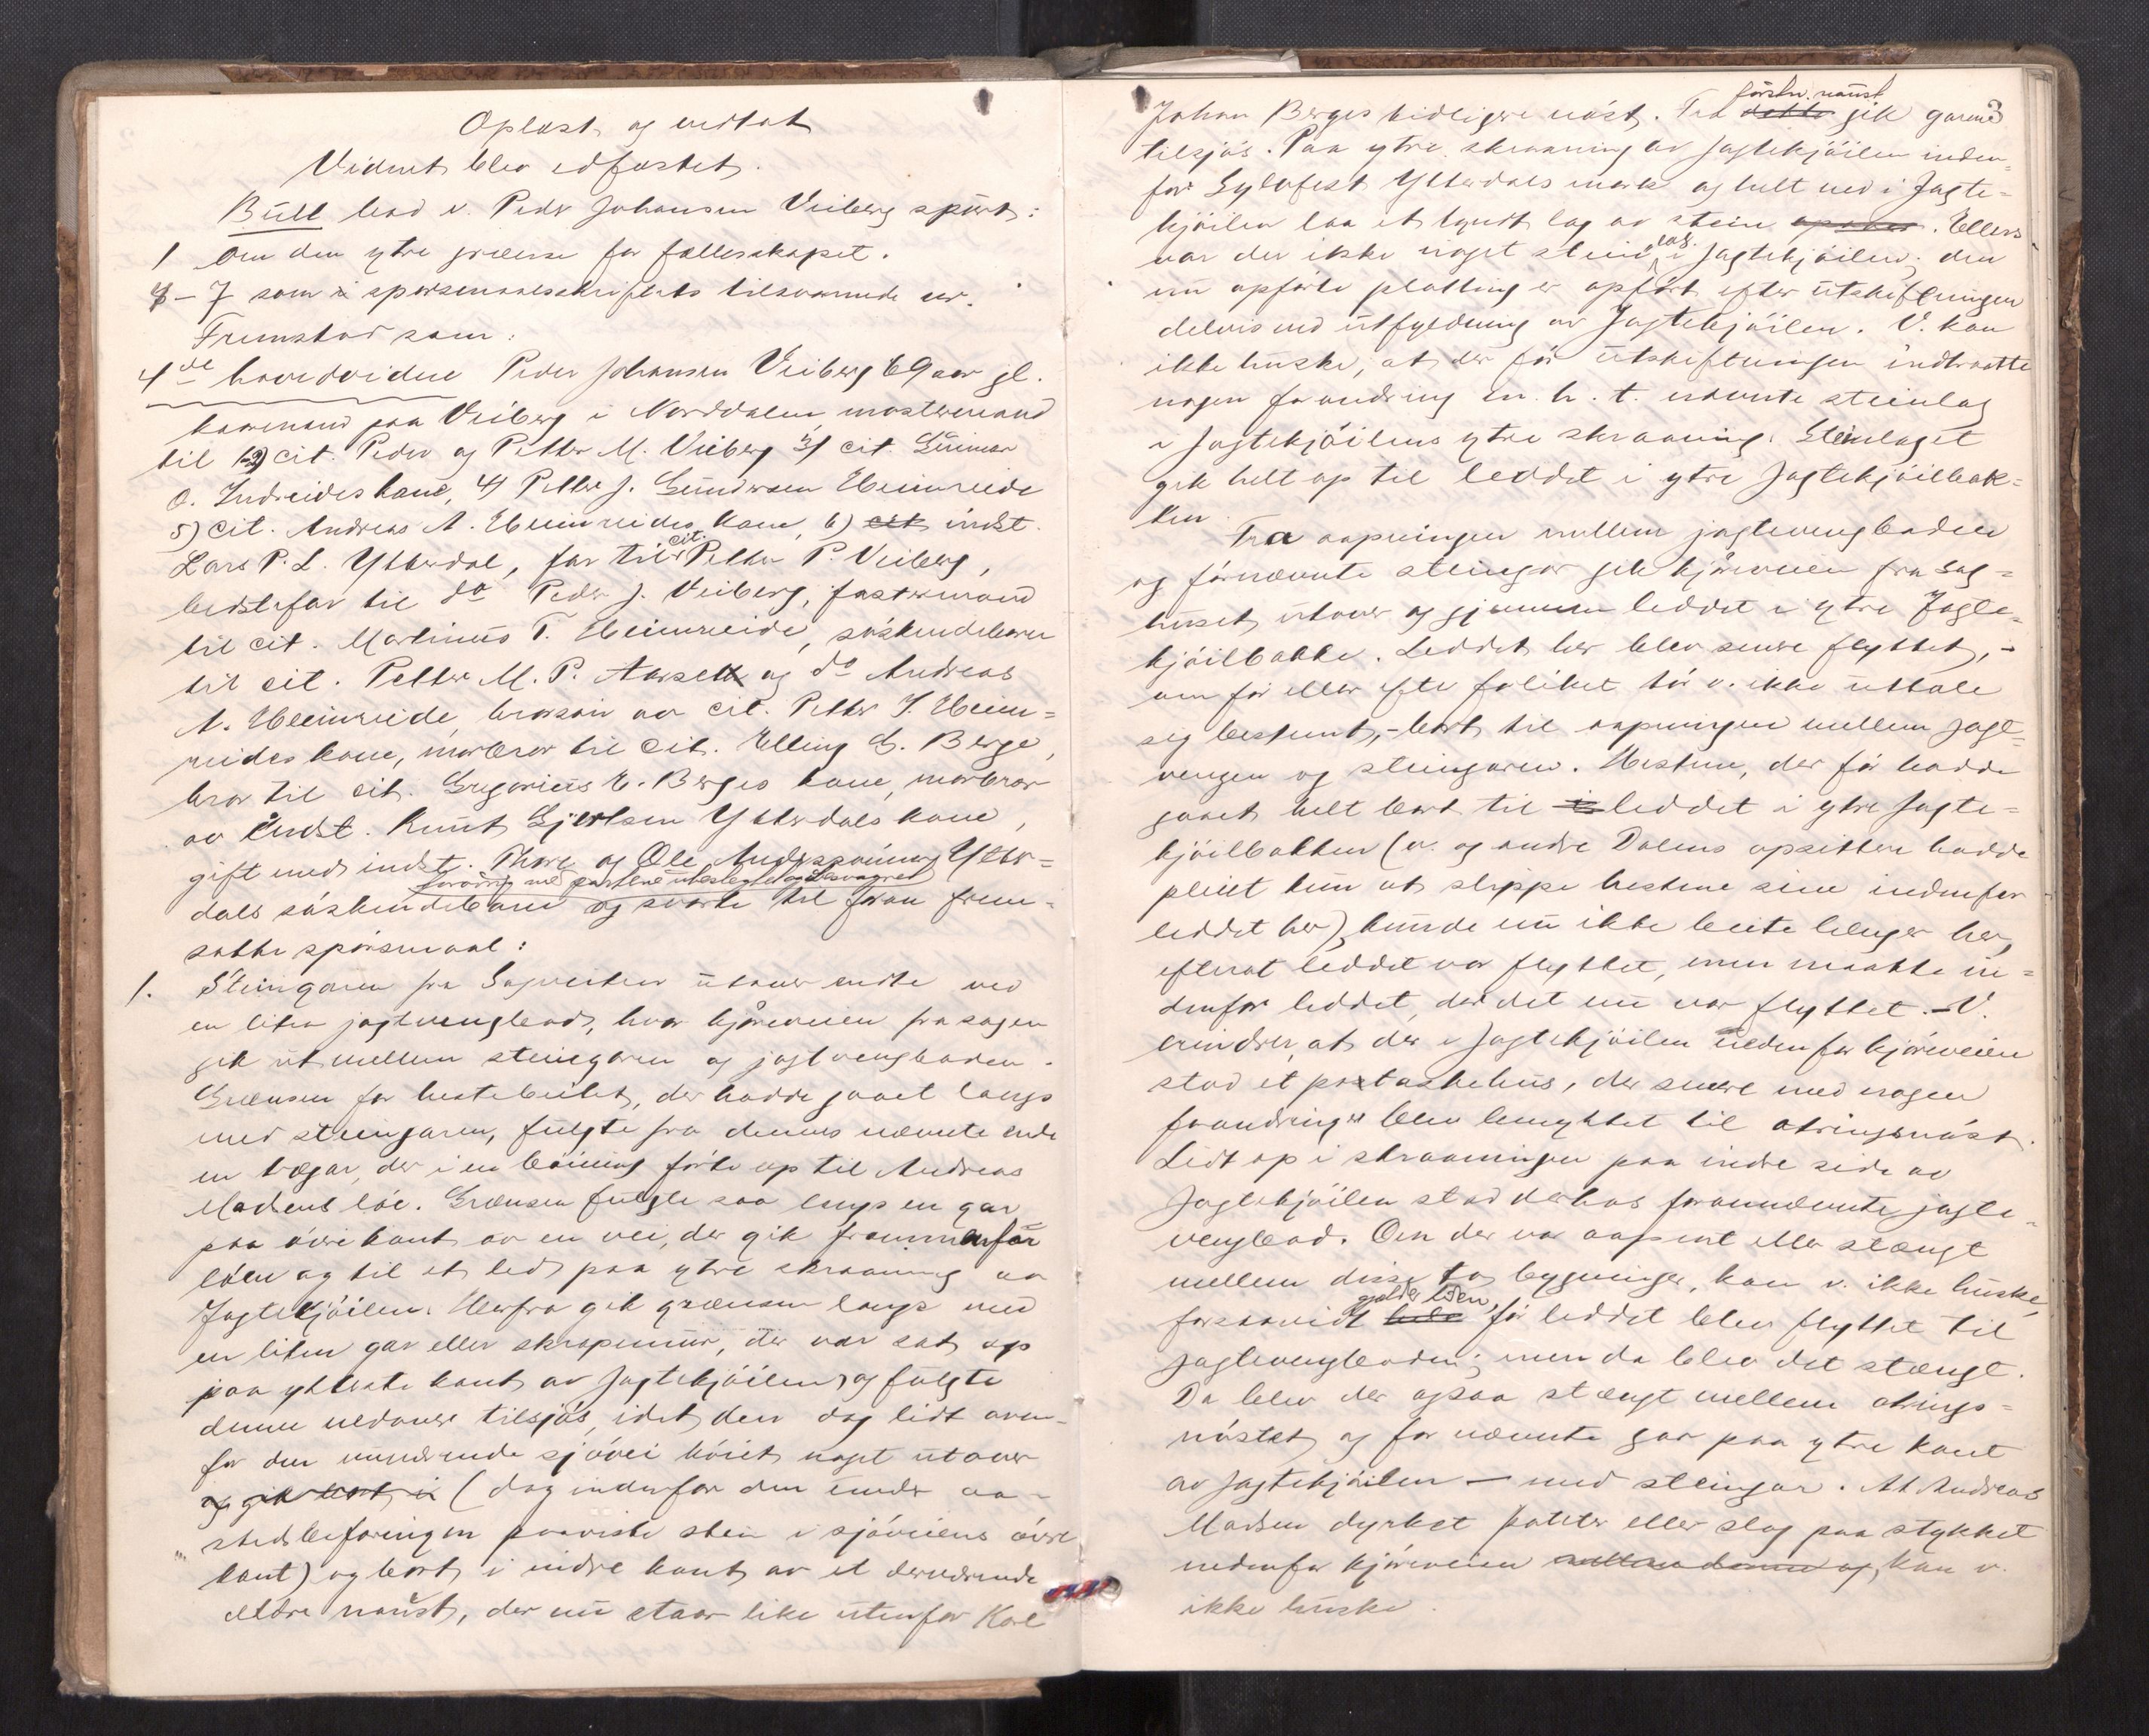 Oplæst og vedtat
Vidnet blev edfæstet.
Bull bad v. Peder Johansen Veiberg spurt:
1 Om den ytre grænse for fællesskapet.
4 - 7 som i spørsmaalsskriftets tilsvarende nr.
Fremstod som:
4de hovedvidne Peder Johansen Veiberg 69 aar gl.
kaarmand paa Veiberg i Norddalen, mostermand
til 1-2) cit. Peder og Petter M. Veiberg 3/ cit. Gunnar
O. Indreides kone, 4) Petter J. Gundersen Heimreide
5) cit. Andreas A. Heimreides kone, 6) cit indst.
Lars P. L. Ytterdal, far til cit. Petter P. Veiberg,
bedstefar til do Peder J. Veiberg, fastermand
til cit. Martinus T. Heimreide, søskendebarn
til cit. Petter M. P. Aarseth og do Andreas
A. Heimreide, brorsøn av cit. Petter J. Heim=
reides kone, morbror til cit. Elling E. Berge,
bror til cit. Gregorius E. Berges kone, morbror
av indst. Knut Gjertsen Ytterdals kone,
gift med indst. Thore og Ole Andersønner Ytter=
forøvrig med partene ubeslegtet og ubesvogret
dals søskendebarn og svarte til foran frem=
satte spørsmaal:
1. Steingaren fra Sagvesten utover endte ved
en liten jagtvengbod, hvor kjøreveien fra sagen
gik ut mellem steingaren og jagtvengboden.
Grænsen for hestebeitet, der hadde gaaet langs
med steingaren, fulgte fra dennes nævnte ende
en trægar, der i en bøining førte op til Andreas
Madsens løe. Grænsen fulgte saa langs en gar
paa øvre kant av en vei, der gik frammenfor
løen og til et led paa ytre skraaning av
Jagtekjøilen. Herfra gik grænsen langs med
en liten gar eller skrapemur, der var sat op
paa ytterste kant av Jagtekjøilen og fulgte
denne nedover tilsjøs, idet den dog lidt oven=
for den nuværende sjøvei bøiet noget utover
og gik bort i (dog indenfor den under aa=
stedsbefaringen paaviste sten i sjøveiens øvre
kant) og bort i indre kant av et derværende
ældre naust, der nu staar like utenfor Karl
3
Johan Berges tidligere nøst. Fra dette førstn. naust gik garen
tilsjøs. Paa ytre skraaning av Jagtekjøilen inden=
for Sylvfest Ytterdals mark og helt ned i Jagte=
kjøilen laa et tyndt lag av stein opover. Ellers
var der ikke noget steinlag i Jagtekjøilen; den
nu opførte platting er opført efter utskiftningen
delvis ved utfyldning av Jagtekjøilen. V. kan
ikke huske, at der før utskiftningen indtraatte
nogen forandring m. h. t. nævnte steinlag
i Jagtekjøilens ytre skraaning. Steinlaget
gik helt op til leddet i ytre Jagtekjøilbak=
ken.
Fra aapningen mellem jagtevengboden
og førnævnte steingar gik kjøreveien fra sag=
huset utover og gjennem leddet i ytre Jagte=
kjøilbakke. Leddet her blev senere flyttet, -
om før eller efter forliket tør v. ikke uttale
sig bestemt, - bort til aapningen mellem jagt=
vengen og steingaren. Hestene, der før hadde
gaaet helt bort til i leddet i ytre Jagte=
kjøilbakken (v. og andre Dalens opsittere hadde
pleiet kun at slippe hestene sine indenfor
leddet her), kunde nu ikke beite længer her,
efterat leddet var flyttet, men maatte in=
denfor leddet, der det nu var flyttet. - V.
erindrer, at der i Jagtekjøilen nedenfor kjøreveien
stod et postaskehus, der senere med nogen
forandringer blev benyttet til otringsnøst.
Lidt op i skraaningen paa indre side av
Jagtekjøilen stod derhos forannævnte jagte=
vengbod. Om der var aapent eller stængt
mellem disse to bygninger, kan v. ikke huske,
forsaavidt hele gjælder tiden, før leddet blev flyttet til
jagtevengboden; men da blev det stængt.
Da blev der ogsaa stængt mellem otrings=
nøstet og fornævnte gar paa ytre kant
av Jagtekjøilen — med steingar. At Andreas
Madsen dyrket poteter eller slog paa stykket
nedenfor kjøreveien mellem denne og, kan v.
ikke huske.